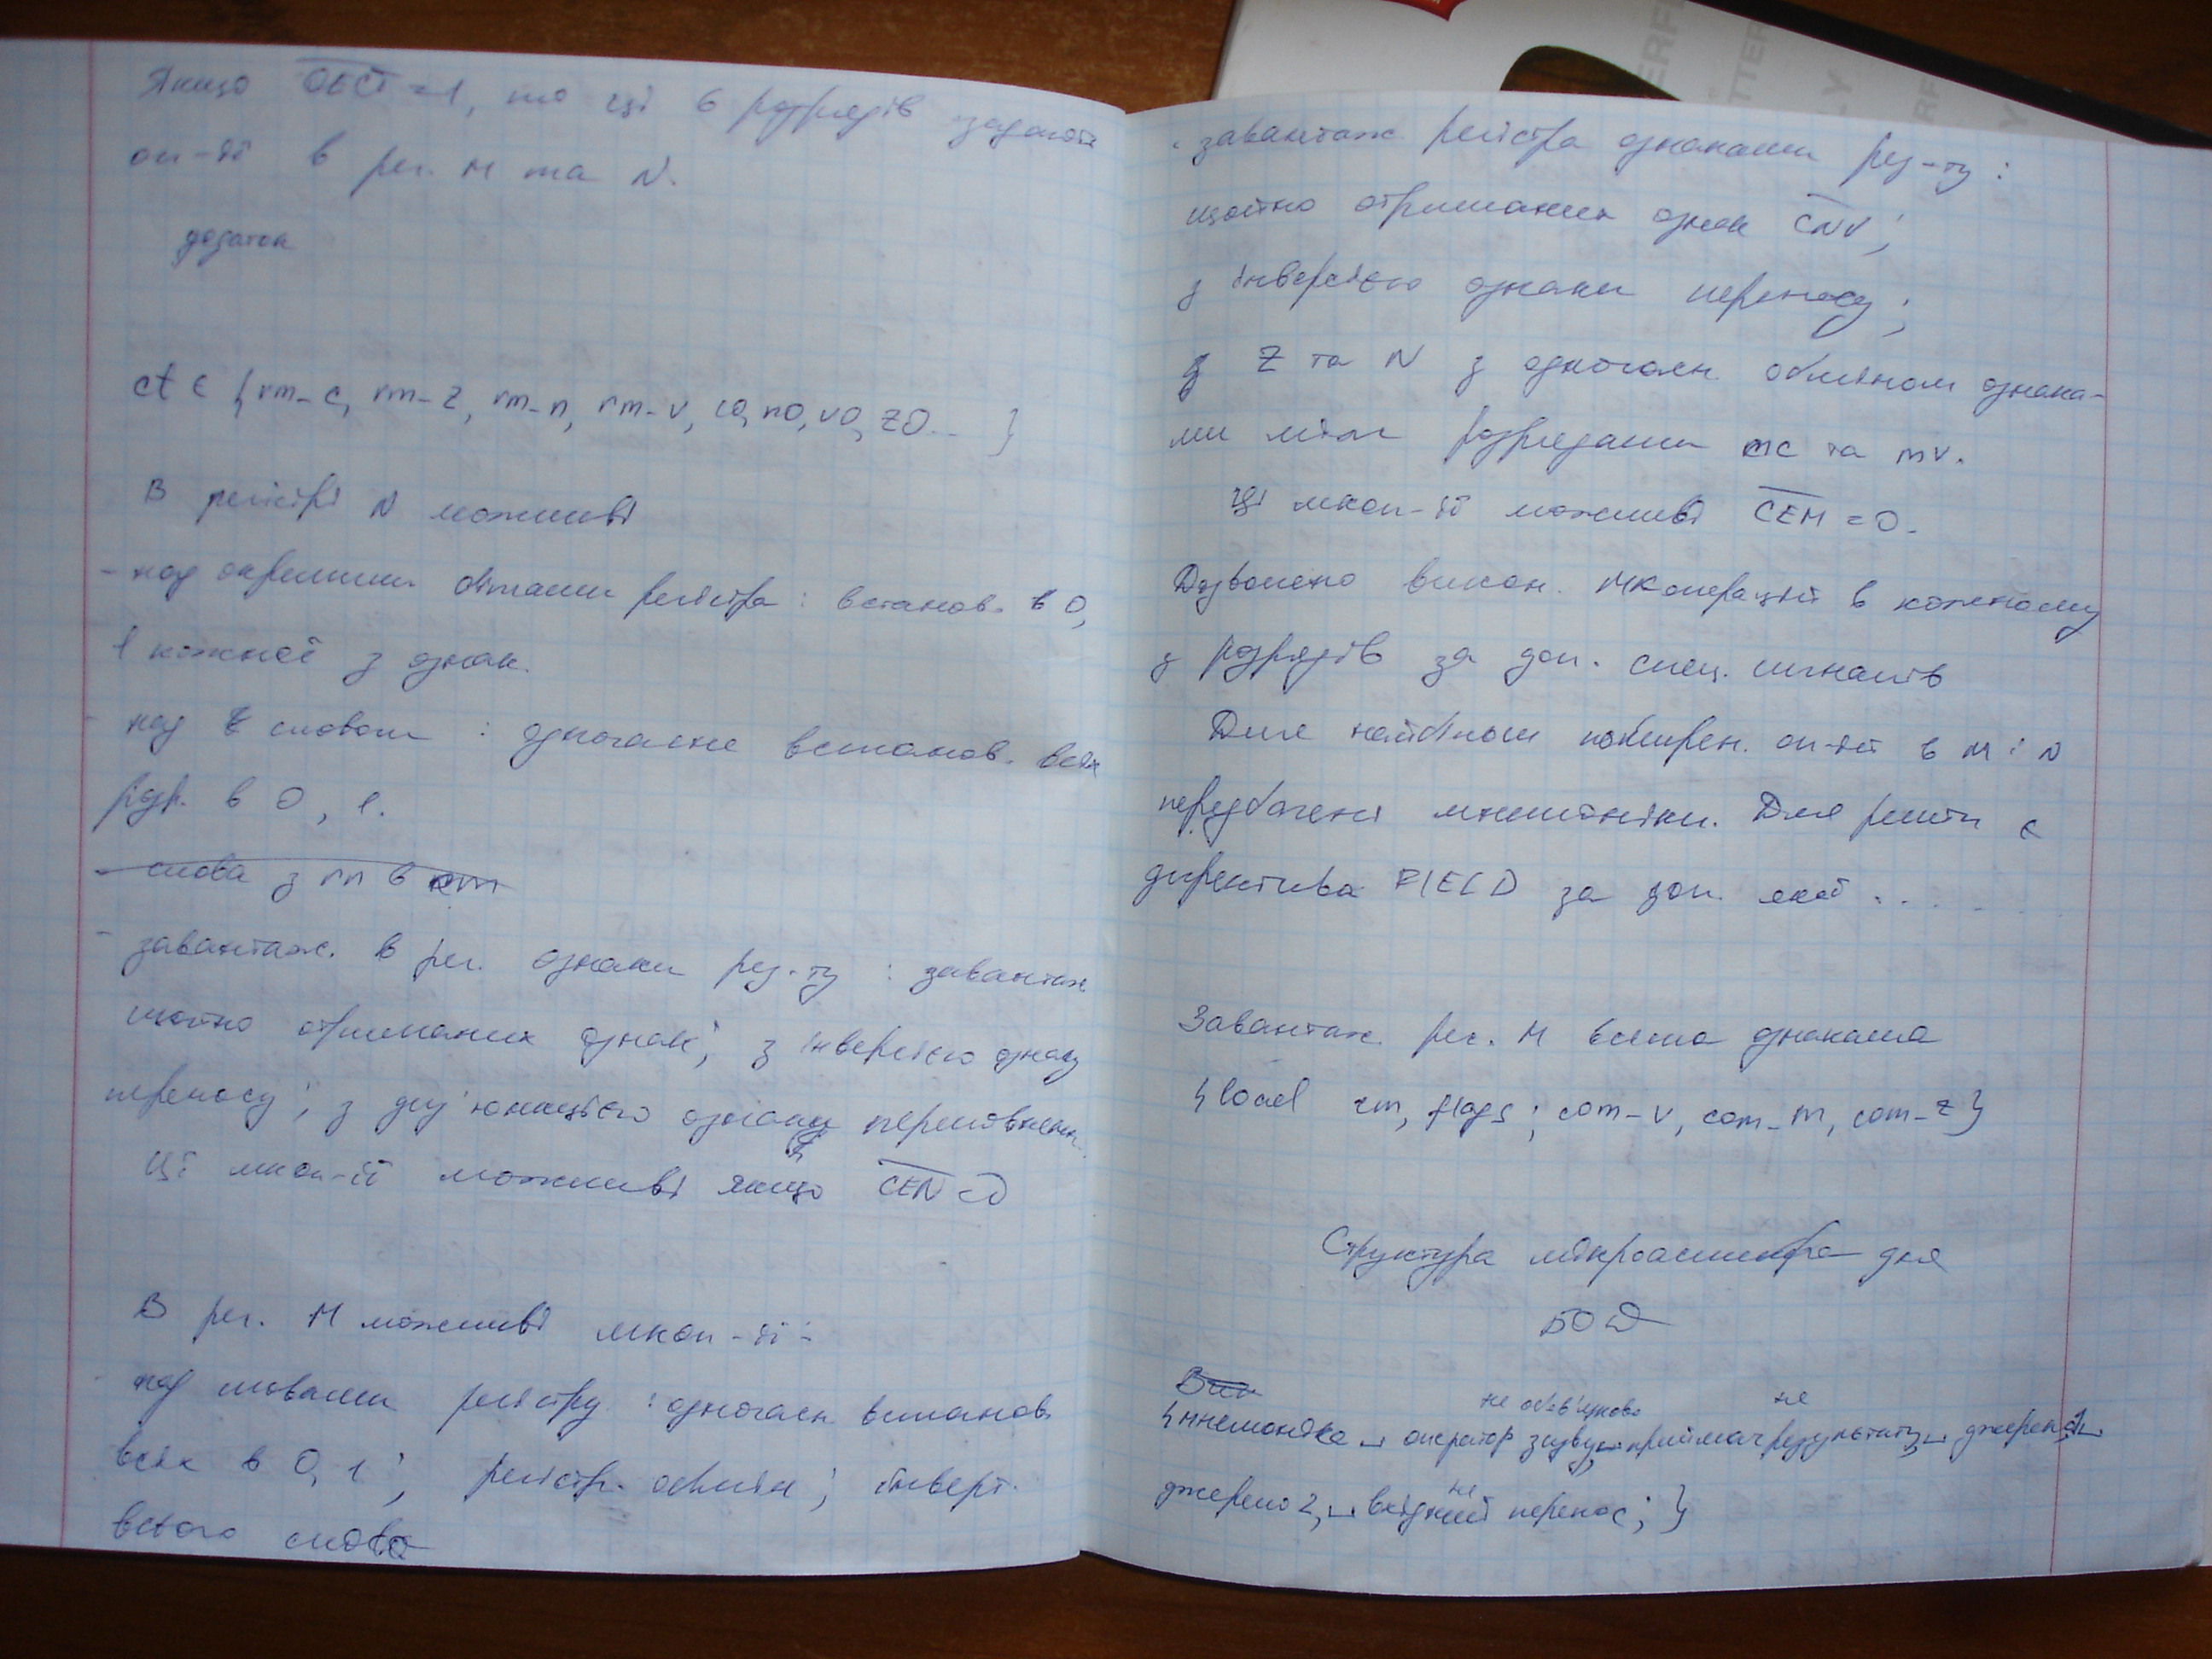 Якщо OECT = 1, то ці 6 розрядів задають
оп-ії в рег. М та N.
додаток
ct ∈ {rm_c, rm_z, rm_n, rm_v, c0, n0, v0, z0... }
В регістрі N можливі
- над окремими бітами регістра : встанов. в 0,
1 кожної з ознак.
- над словом : одночасне встанов. всіх
розр. в 0, 1.
- слова з rn в rm
- завантаж. в рег. ознаки рез-ту : завантаж
щойно отриманих ознак; з інверсією ознаки
переносу; з диз'юнкцією ознаки переповнен.
Ці мкоп-ії можливі якщо CEN = 0
В рег. М можливі мкоп-ії :
- над словами регістру : одночасн встанов.
всіх в 0, 1; регістр. обмін; інверт.
всього слова
- завантаж регістра ознаками рез-ту :
щойно отриманих ознак CNV;
з інверсією ознаки переносу;
з Z та N з одночасн. обміном ознака-
ми між розрядами mc та mv.
Ці мкоп-ії можливі CEM = 0.
Дозволено викон. мкоперацій в кожному
з розрядів за доп. спец. сигналів
Для найбільш поширен. оп-ій в М і N
передбачені мнемоніки. Для решти є
директива FIELD за доп. якої . . . . .
Завантаж. рег. М всіма ознаками
{load rm, flags; com_v, com_m, com_z}
Структура мікроасемблера для
БОД
не обов'язково не
{мнемоніка ␣ оператор зсуву,␣ приймач результату,␣ джерело1,␣
не
джерело 2,␣ вхідний перенос; }